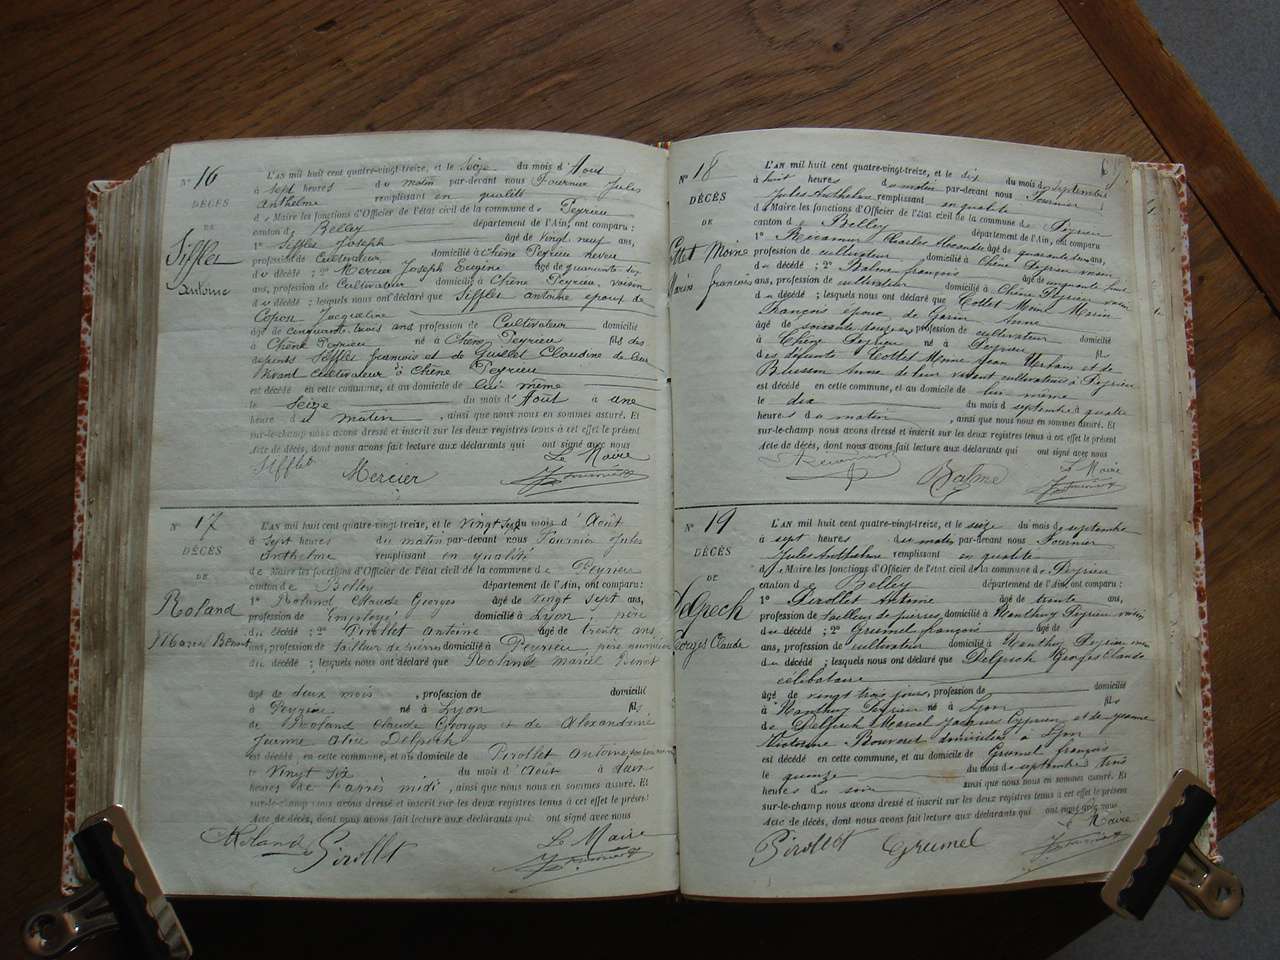 N° 16
DÉCÈS
DE
Sifflet
Antoine
L'AN mil huit cent quatre-vingt-treize, et le seize du mois d'Aout
à sept heures du matin par-devant nous Fournier Jules
Anthelme remplissant en qualité
de Maire les fonctions d'Officier de l'état civil de la commune de Peyrieu
canton de Belley département de l'Ain, ont comparu :
1° Sifflet Joseph âgé de vingt neuf ans,
profession de Cultivateur domicilié à Chêne Peyrieu neveu
du décédé ; 2° Mercier Joseph Eugène âgé de quarante
ans, profession de Cultivateur domicilié à Chêne Peyrieu voisin
du décédé ; lesquels nous ont déclaré que Sifflet antoine epoux de
Jacqueline
âgé de cinquante trois ans profession de Cultivateur domicilié
à Chêne Peyrieu né à Chêne Peyrieu fils des
défunts Sifflet françois et de Claudine de leur
vivant cultivateur à Chêne Peyrieu
est décédé en cette commune, et au domicile de lui même
le Seize du mois d'Aout à une
heure du matin, ainsi que nous nous en sommes assuré. Et
sur-le-champ nous avons dressé et inscrit sur les deux registres tenus à cet effet le présent
Acte de décès, dont nous avons fait lecture aux déclarants qui ont signé avec nous
Sifflet Mercier Le Maire
N° 17
DÉCÈS
DE
Roland
Marcel Benoit
L'AN mil huit cent quatre-vingt-treize, et le vingt six du mois d'Août
à Sept heures du matin par-devant nous Fournier Jules
Anthelme remplissant en qualité
de Maire les fonctions d'Officier de l'état civil de la commune de Peyrieu
canton de Belley département de l'Ain, ont comparu :
1° Roland Claude Georges âgé de vingt sept ans,
profession de Employé domicilié à Lyon, père
du décédé ; 2° Pirollet antoine âgé de trente ans
ans, profession de tailleur de pierre domicilié à Peyrieu, père nourricier
du décédé ; lesquels nous ont déclaré que Roland marcel Benoit
âgé de deux mois, profession de domicilié
à Peyrieu né à Lyon fils
de Roland Claude Georges et de Alexandrine
Delpech
est décédé en cette commune, et au domicile de Pirollet antoine
le vingt six du mois d'Aout à deux
heures de l'après midi, ainsi que nous nous en sommes assuré. Et
sur-le-champ nous avons dressé et inscrit sur les deux registres tenus à cet effet le présent
Acte de décès, dont nous avons fait lecture aux déclarants qui ont signé avec nous
Roland Pirollet Le Maire
N° 18
DÉCÈS
DE
Cottet Moine
Marin françois
L'AN mil huit cent quatre-vingt-treize, et le dix du mois de septembre
à huit heures du matin par-devant nous Fournier
Jules Anthelme remplissant en qualité
de Maire les fonctions d'Officier de l'état civil de la commune de Peyrieu
canton de Belley département de l'Ain, ont comparu
1° Récamier Charles âgé de quarante ans,
profession de cultivateur domicilié à Chêne Peyrieu voisin
du décédé ; 2° Balme françois âgé de cinquante
ans, profession de cultivateur domicilié à Chêne Peyrieu voisin
du décédé ; lesquels nous ont déclaré que Cottet Moine Marin
François epoux de Garin Anne
âgé de soixante douze ans profession de cultivateur domicilié
à Chêne Peyrieu né à Peyrieu fils
des défunts Cottet Moine Jean Urbain et de
Anne de leur vivant cultivateurs à Peyrieu
est décédé en cette commune, et au domicile de lui même
le dix du mois de septembre à quatre
heures du matin, ainsi que nous nous en sommes assuré. Et
sur-le-champ nous avons dressé et inscrit sur les deux registres tenus à cet effet le présent
Acte de décès, dont nous avons fait lecture aux déclarants qui ont signé avec nous
Balme Le Maire
N° 19
DÉCÈS
DE
Delpech
Georges Claude
L'AN mil huit cent quatre-vingt-treize, et le seize du mois de septembre
à sept heures du matin par-devant nous Fournier
Jules Anthelme remplissant en qualité
de Maire les fonctions d'Officier de l'état civil de la commune de Peyrieu
canton de Belley département de l'Ain, ont comparu :
1° Pirollet Antoine âgé de trente ans,
profession de tailleur de pierres domicilié à Nanthuy Peyrieu voisin
du décédé ; 2° Grumel françois âgé de
ans, profession de cultivateur domicilié à Nanthuy Peyrieu
du décédé ; lesquels nous ont déclaré que Delpech Georges Claude
célibataire
âgé de vingt trois jours, profession de domicilié
à Nanthuy Peyrieu né à Lyon fils
de Delpech Marcel Jacques Cyprien et de Jeanne
Victorine Bouveret domiciliés à Lyon
est décédé en cette commune, et au domicile de Grumel françois
le quinze du mois de septembre à trois
heures du soir ainsi que nous nous en sommes assuré. Et
sur-le-champ nous avons dressé et inscrit sur les deux registres tenus à cet effet le présent
Acte de décès, dont nous avons fait lecture aux déclarants qui ont signé avec nous
Pirollet Grumel Le Maire